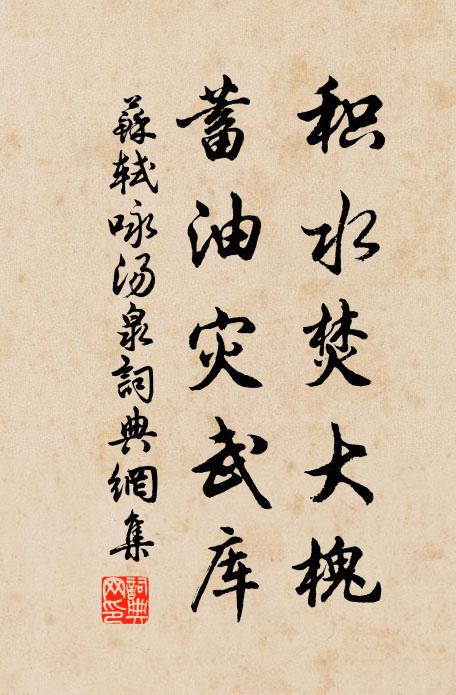 积水焚大槐
蓄油灾武库
蘇轼咏汤泉詞典網集
詞典
网印